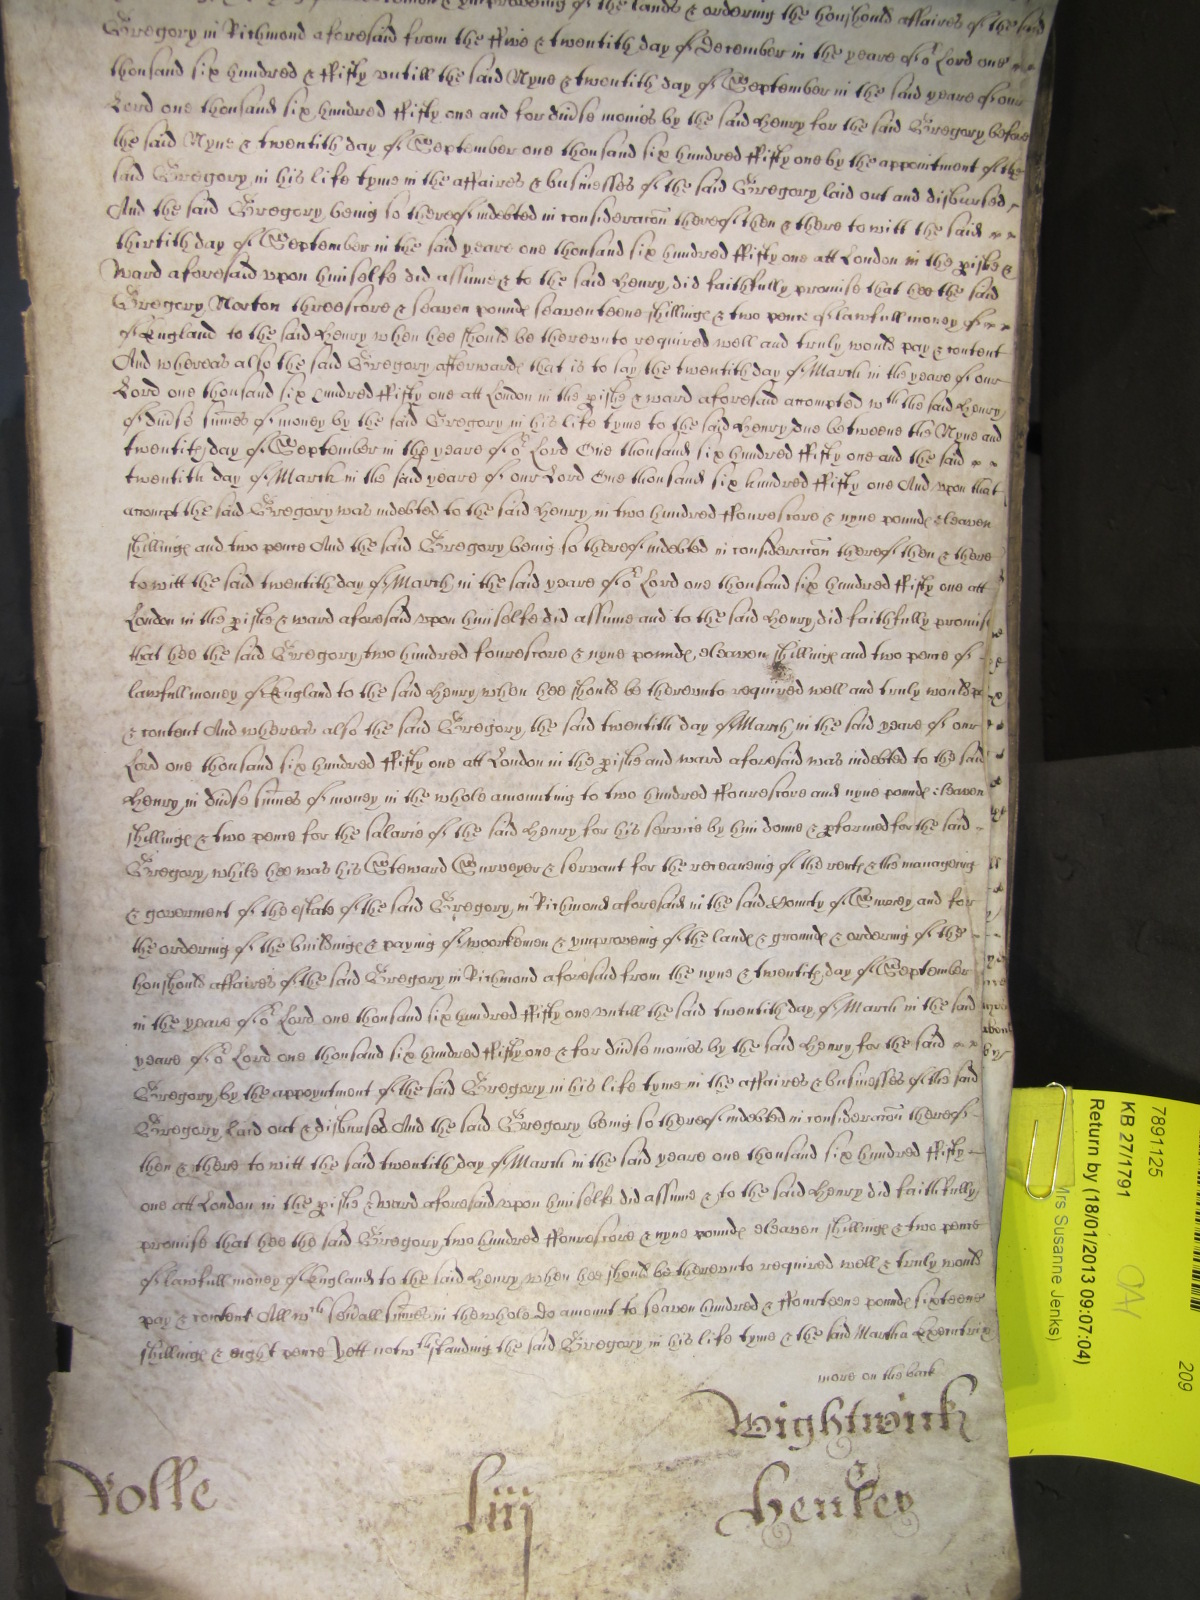 improveing of the lands & ordering the houshould affaires of the said
Gregory in Richmond aforesaid from the ffive & twentith day of December in the yeare of or Lord one
thousand six hundred & ffifty vntill the said Nyne & twentith day of September in the said yeare of our
Lord one thousand six hundred ffifty one and for divse monies by the said Henry for the said Gregory before
the said Nyne & twentith day of September one thousand six hundred ffifty one by the appointment of the
said Gregory in his life tyme in the affaires & businesses of the said Gregory laid out and disbursed
And the said Gregory being so thereof indebted in consideracon thereof then & there to witt the said
thirtith day of September in the said yeare one thousand six hundred ffifty one att London in the pishe &
Ward aforesaid vpon himselfe did assume & to the said Henry did faithfully promise that hee the said
Gregory Norton threescore & seaven pounds seaventeene shillings & two pence of lawfull money of
of England to the said Henry when hee should be therevnto required well and truly would pay & content
And whereas also the said Gregory afterwards that is to say the twentith day of March in the yeare of our
Lord one thousand six hundred ffifty one att London in the pishe & ward aforesaid accompted wth the said Henry
of divse sumes of money by the said Gregory in his life tyme to the said Henry due betweene the Nyne and
twentith day of September in the yeare of or Lord One thousand six hundred ffifty one and the said
twentith day of March in the said yeare of our Lord One thousand six hundred ffifty one And vpon that
accompt the said Gregory was indebted to the said Henry in two hundred ffourescore & nyne pounds eleaven
shillings and two pence And the said Gregory being so thereof indebted in consideracon thereof then & there
to witt the said twentith day of March in the said yeare of or Lord one thousand six hundred ffifty one att
London in the pishe & ward aforesaid vpon himselfe did assume and to the said Henry did faithfully promise
that hee the said Gregory two hundred fourescore & nyne pounds eleaven shillings and two pence of
lawfull money of England to the said Henry when hee should be therevnto required well and truly would
& content And whereas also the said Gregory the said twentith day of March in the said yeare of our
Lord one thousand six hundred ffifty one att London in the pishe and ward aforesaid was indebted to the said
Henry in divse sumes of money in the whole amounting to two hundred ffourescore and nyne pounds eleaven
shillings & two pence for the salarie of the said Henry for his service by him donne & pformed for the said
Gregory while hee was his Steward Surveyer & servant for the receaveing of the rents & the manageing
& goverment of the estate of the said Gregory in Richmond aforesaid in the said County of Surrey and for
the ordering of the buildings & paying of woorkemen & ymproveing of the lands & grounds & ordering of the
houshould affaires of the said Gregory in Richmond aforesaid from the nyne & twentith day of September
in the yeare of or Lord one thousand six hundred ffifty one vntill the said twentith day of March in the said
yeare of or Lord one thousand six hundred ffifty one & for divse monies by the said Henry for the said
Gregory by the appoyntment of the said Gregory in his life tyme in the affaires & businesses of the said
Gregory laid out & disbursed And the said Gregory being so thereof indebted in consideracon thereof
then & there to witt the said twentith day of March in the said yeare one thousand six hundred ffifty
one att London in the pishe & ward aforesaid vpon himselfe did assume & to the said Henry did faithfully
promise that hee the said Gregory two hundred ffourescore & nyne pounds eleaven shillings & two pence
of lawfull money of England to the said Henry when hee should be therevnto required well & truly would
pay & content All wch sevall sumes in the whole do amount to seaven hundred & ffourteene pounds sixteene
shillings & eight pence Yett notwthstanding the said Gregory in his life tyme & the said Martha Executrix
more on the back
Wightwick
&
Rolle liij Henley
7891125
KB 27/1791
Return by (18/01/2013 09:07:04)
Mrs Susanne Jenks)
209